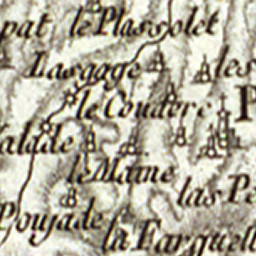 pat le Plassolet
Lasgage les
le Couderc P
alade
le Maine
las Pe
Poujade
la Farguell